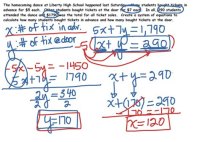 The homecoming dance at Liberty High School happened last Saturday. Many students bought tickets in
advance for $5 each. Other students bought tickets at the door for $7 each. In all, 290 students
attended the dance and $1,790 was the total for all ticket sales. Create a system of equations to
calculate how many students bought tickets in advance and how many bought tickets at the door.
x: # of tix in adv.
y: # of tix @ door
5x + 7y = 1,790
-5(x + y = 290)
-5x - 5y = -1450
5x + 7y = 1790
2y = 340
2 2
y = 170
x + y = 290
x + (170) = 290
-170 -170
x = 120